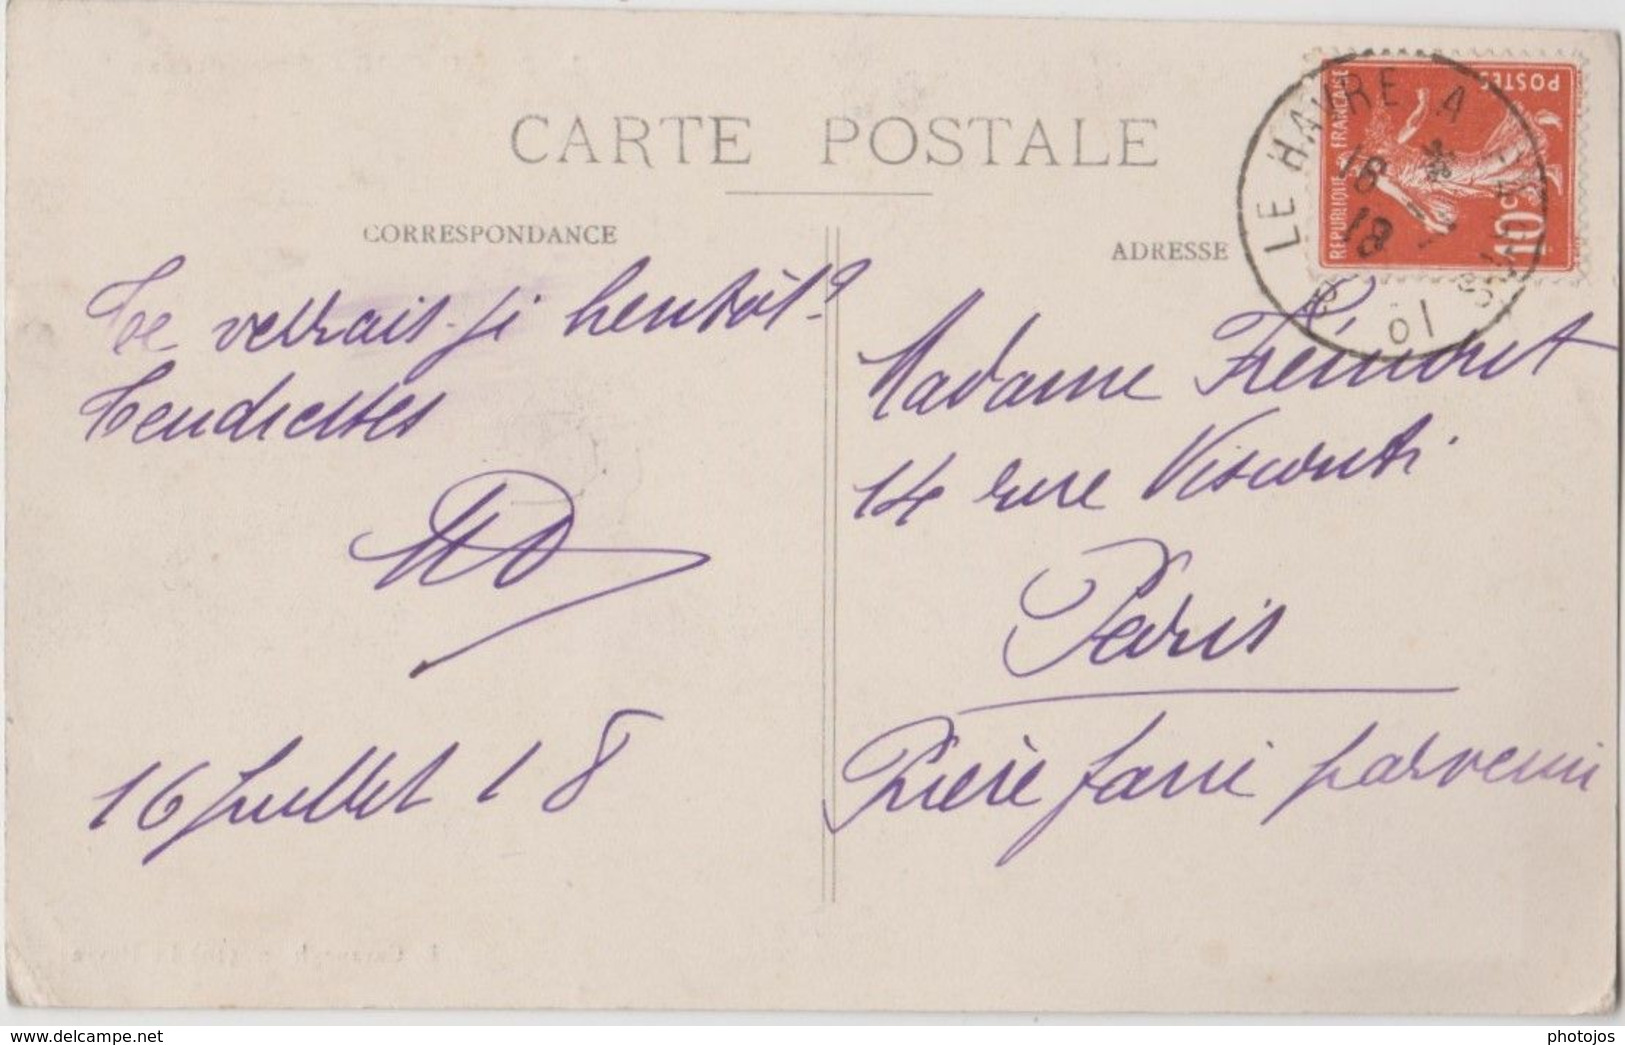 CARTE POSTALE
CORRESPONDANCE
ADRESSE
Te verrais-je bientôt?
Tendresses
16 Juillet 18
Madame Frémont
14 rue Visconti
Paris
Prière faire parvenir
REPUBLIQUE FRANÇAISE
POSTES
10c
LE HAVRE A
16
18
photojos